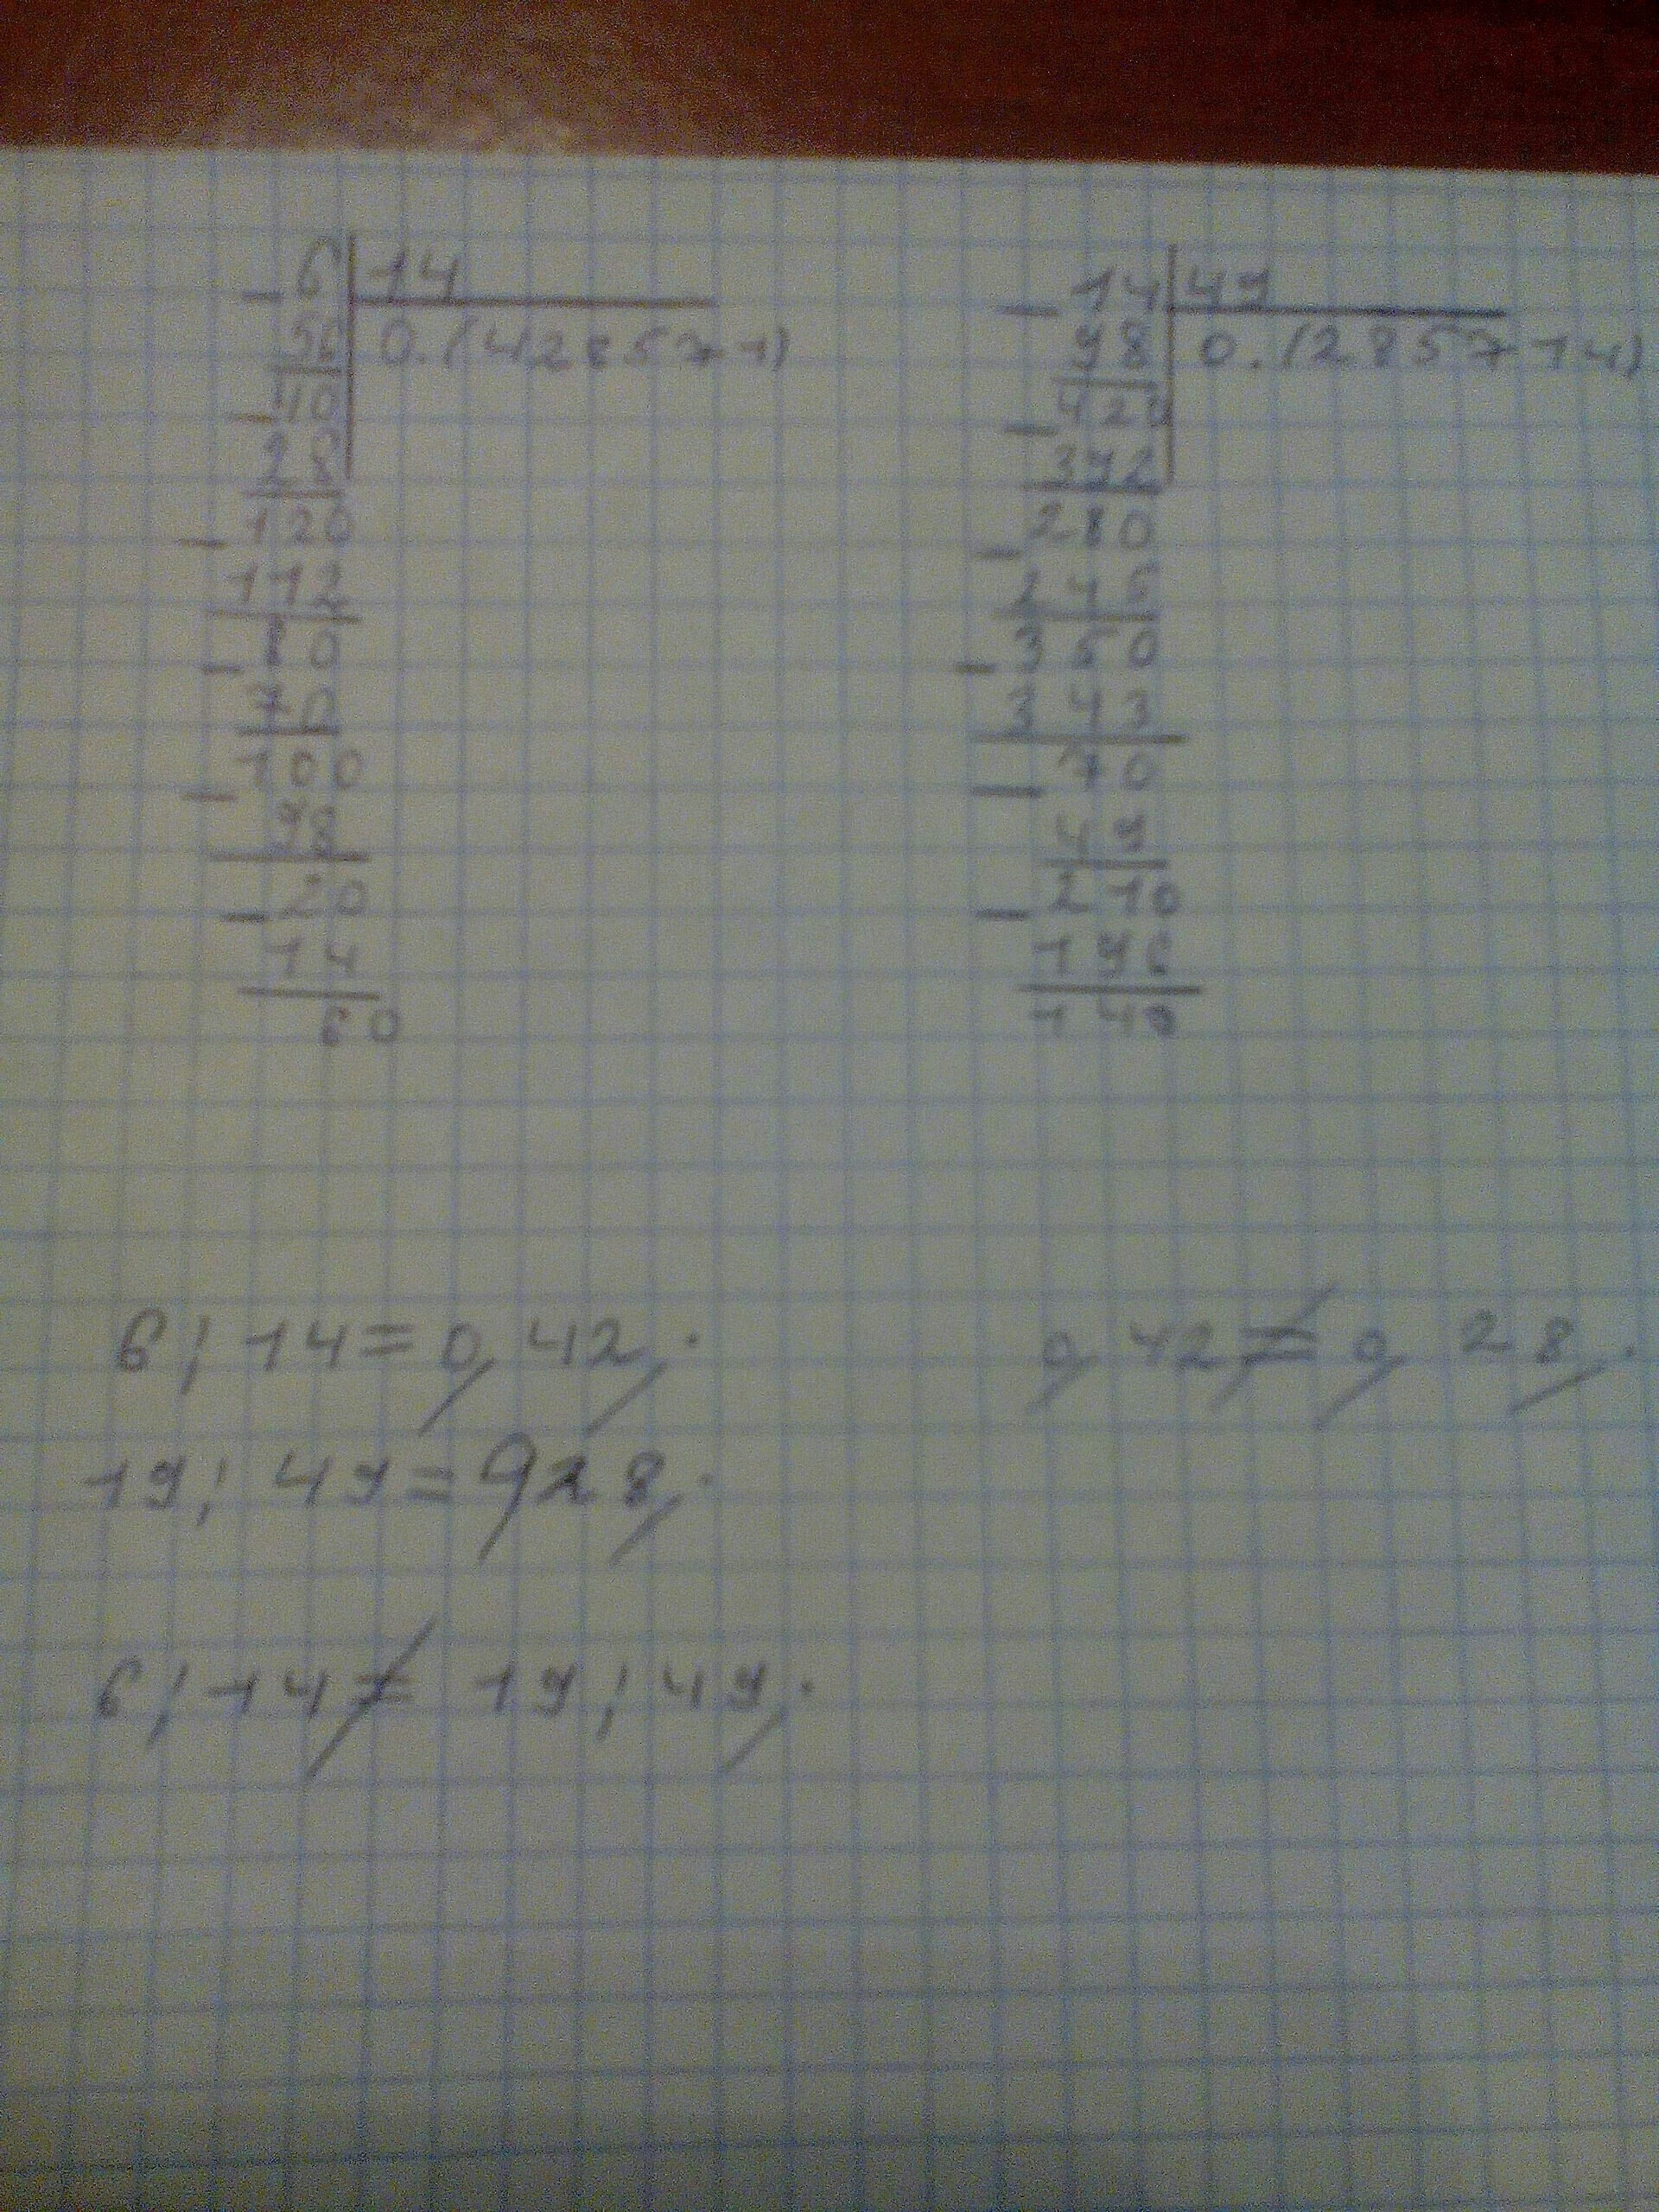 6 14
56 0.(428571)
40
28
120
112
80
70
100
98
20
14
60
14 49
98 0.(285714)
420
392
280
245
350
343
70
49
210
196
140
6 : 14 = 0,42.
0,42 ≠ 0,28.
19 : 49 = 0,28.
6 : 14 ≠ 19 : 49.